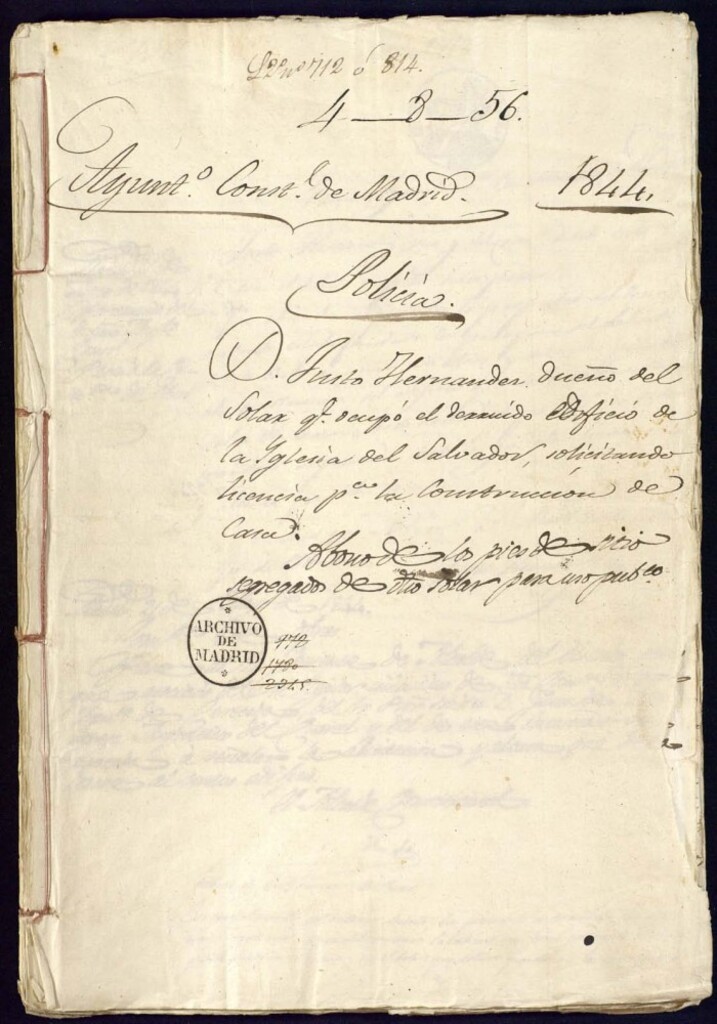 nº 712 ó 814.
4—8—56.
Ayuntº. Constl. de Madrid. 1844.
Policia.
D. Justo Hernandez, dueño del
Solar qe. ocupó el derruido edificio de
la Yglesia del Salvador, solicitando
licencia pa. la Construccion de
Casa.
Abono de los pies de sitio
segregados de dho solar para uso pubco.
ARCHIVO
DE
MADRID